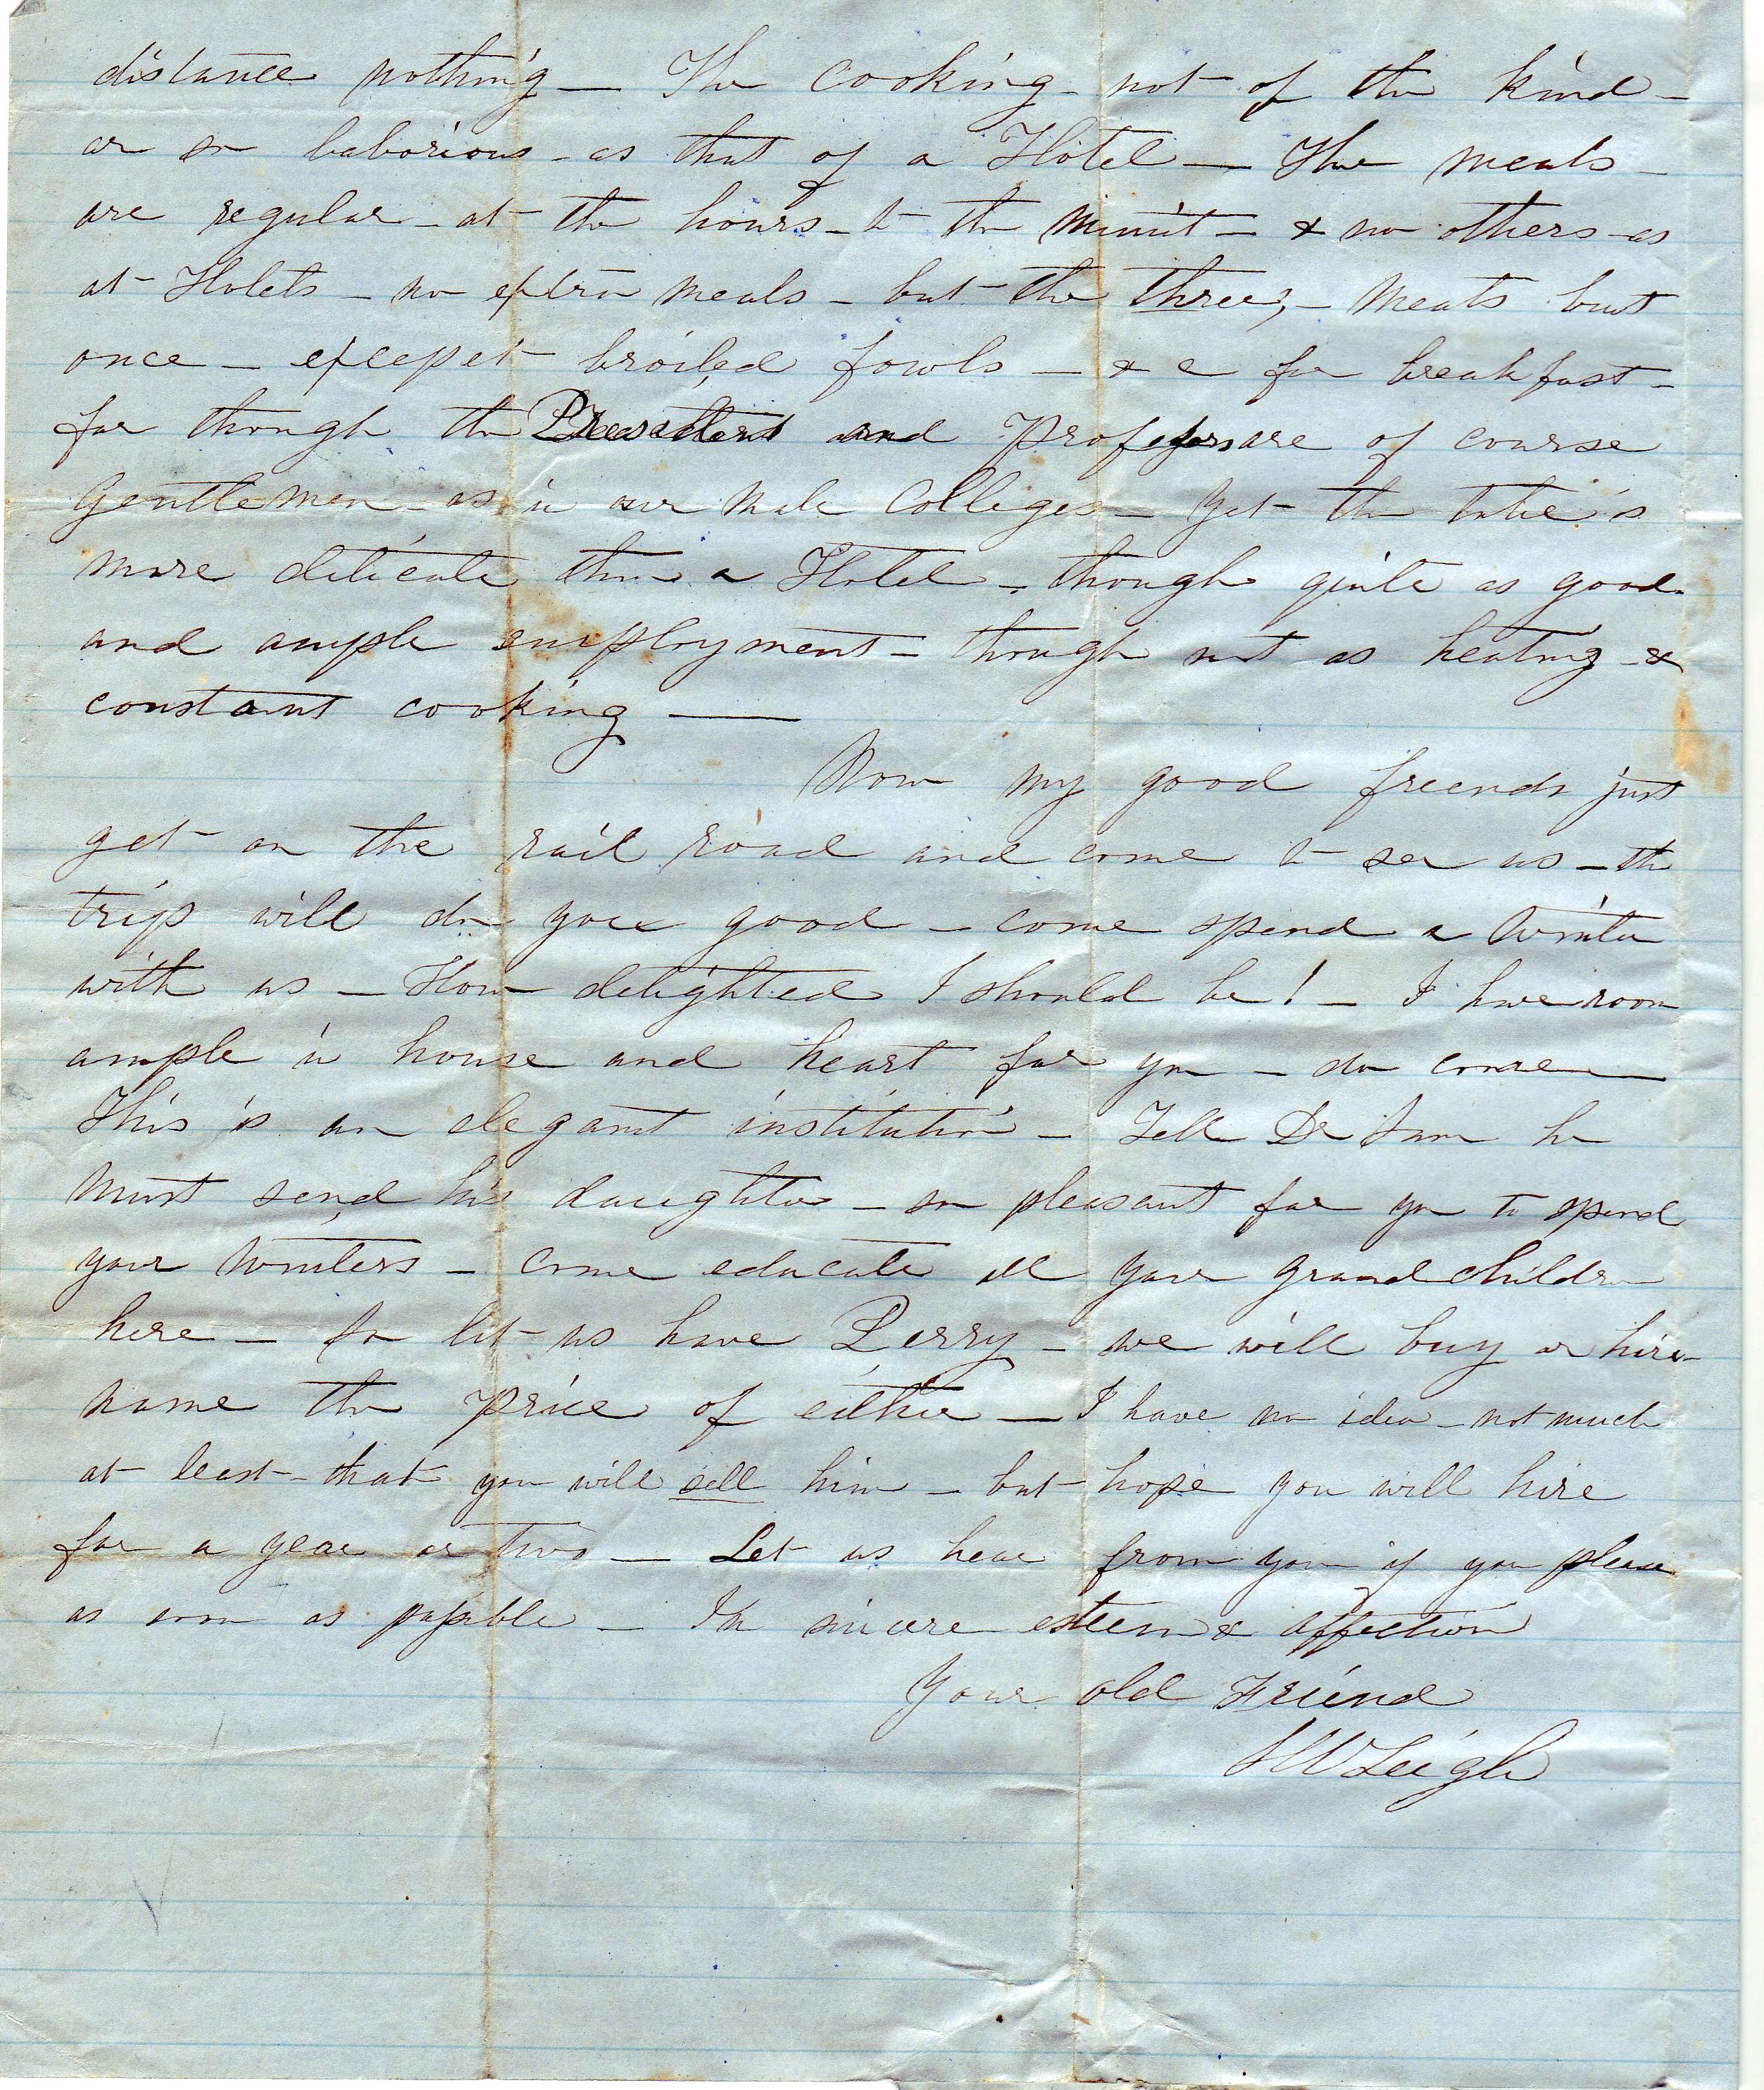 distance nothing — The cooking - not of the kind -
or so laborious - as that of a Hotel — The meals -
are regular - at the hours - to the minit - & no others - as
at Hotels - no extra meals - but the three, - Meats but
once - excepet broiled fowls - & c for breakfast -
for though the President and Professors are of course
Gentlemen - as in our Male Colleges - yet the table is
more delicate than a Hotel - though quite as good -
and ample employment - though not as heating - &
constant cooking —
Now my good friends just
get on the rail road and come to see us - the
trip will do you good - come spend a winter
with us - How delighted I should be! - I have room
ample in house and heart for you - do come —
This is an elegant institution - Tell Dr Sam he
must send his daughter - so pleasant for you to spend
your winters - come educate all your grandchildren
here - So let us have Perry - we will buy or hire -
name the price of either — I have no idea - not much
at least - that you will sell him - but hope you will hire
for a year or two — Let us hear from you if you please
as soon as possible — In sincere esteem & affection
Your old Friend
Leigh